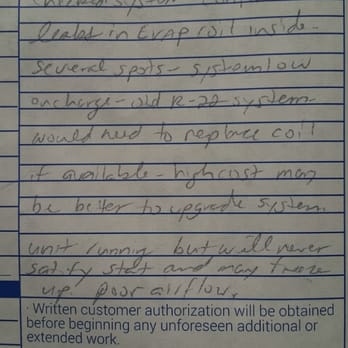 checked system
leaks in Evap coil inside-
Several spots- system low
on charge- old R-22 system-
would need to replace coil
if available- high cost may
be better to upgrade system.
unit running but will never
satisfy stat and may freeze
up. poor airflow.
· Written customer authorization will be obtained
before beginning any unforeseen additional or
extended work.